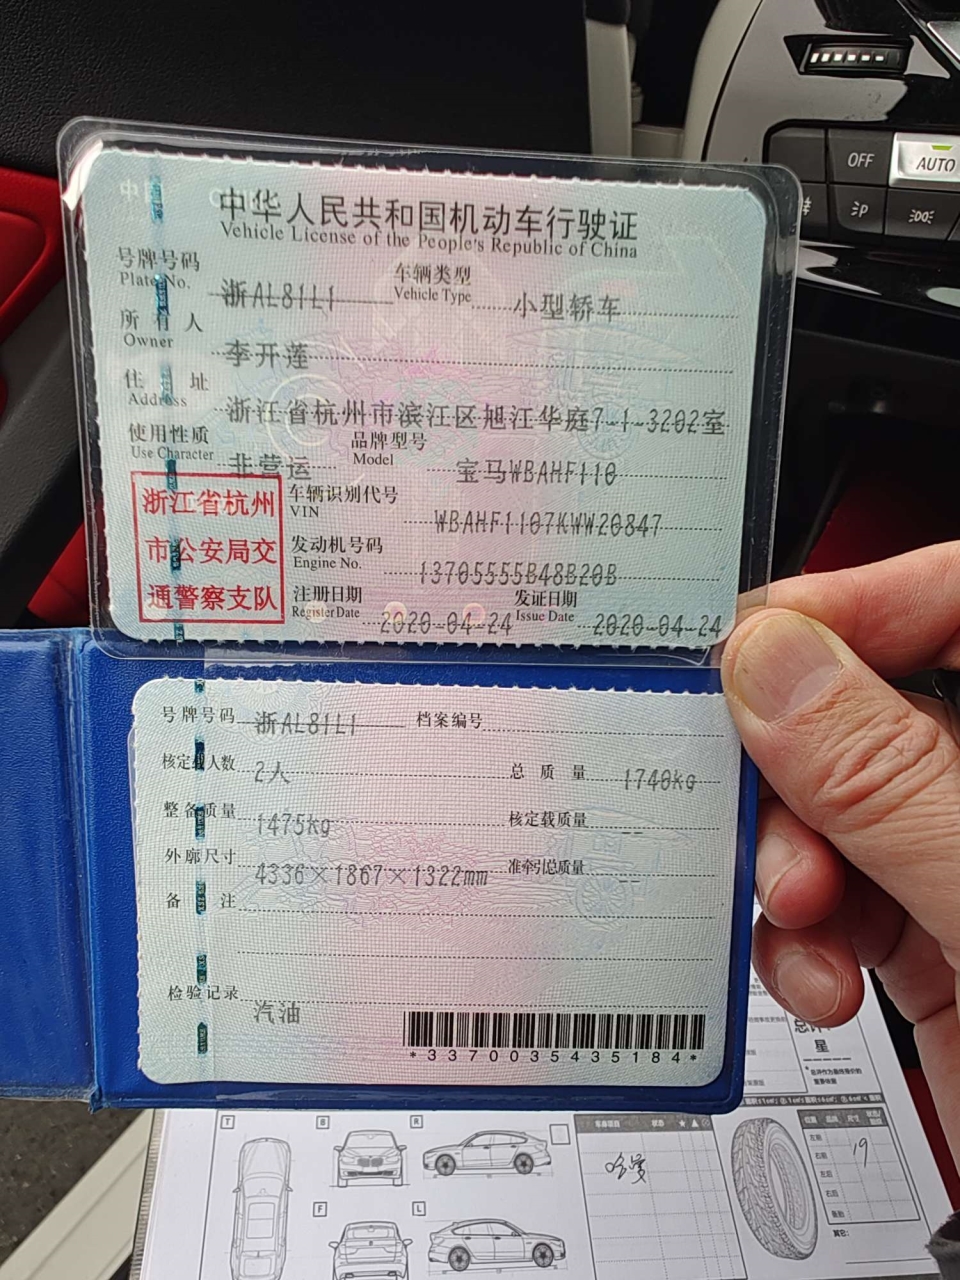 OFF
AUTO
中华人民共和国机动车行驶证
Vehicle License of the People's Republic of China
号牌号码 浙AL81L1 车辆类型 小型轿车
Plate No. Vehicle Type
所有人 李开莲
Owner
住址 浙江省杭州市滨江区旭江华庭7-1-3202室
Address
使用性质 非营运 品牌型号 宝马WBAHF110
Use Character Model
浙江省杭州
市公安局交
通警察支队
车辆识别代号 WBAHF1107KWW20847
VIN
发动机号码 13705555B48B20B
Engine No.
注册日期 2020-04-24 发证日期 2020-04-24
Register Date Issue Date
号牌号码 浙AL81L1 档案编号
核定载人数 2人 总质量 1740kg
整备质量 1475kg 核定载质量 --
外廓尺寸 4336×1867×1322mm 准牵引总质量 --
备注
检验记录 汽油
*3370035435184*
星
T B R
F L
状态
左前
右前 19
左后
右后
备胎
其它: